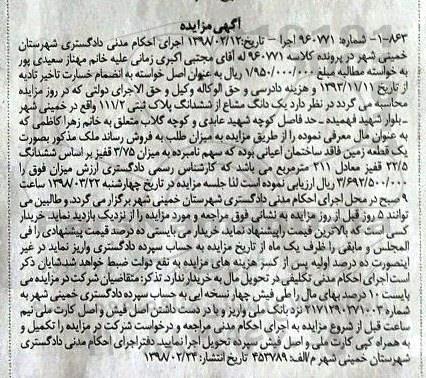 آگهی مزایده
۸۶۳-۱- شماره: ۹۶۰۷۷۱ اجرا - تاریخ: ۱۳۹۸/۰۲/۱۲ اجرای احکام مدنی دادگستری شهرستان
خمینی شهر در پرونده کلاسه ۹۶۰۷۷۱ له آقای مجتبی اکبری زمانی علیه خانم مهناز سعیدی پور
به خواسته مطالبه مبلغ ۱/۹۵۰/۰۰۰/۰۰۰ ریال به عنوان اصل خواسته به انضمام خسارت تاخیر تادیه
از تاریخ ۱۳۹۳/۱۱/۱۱ و هزینه دادرسی و حق الوکاله وکیل و حق الاجرای دولتی که در روز مزایده
محاسبه می گردد در نظر دارد یک دانگ مشاع از ششدانگ پلاک ثبتی ۱۱۱/۲ واقع در خمینی شهر
ـ بلوار شهید فهمیده ـ حد فاصل کوچه شهید عابدی و کوچه گلاب متعلق به خانم زهرا کاظمی که
به عنوان مال معرفی نموده را از طریق مزایده به میزان طلب به فروش رساند ملک مذکور بصورت
یک قطعه زمین فاقد ساختمان اعیانی بوده که سهم نامبرده به میزان ۳/۷۵ قفیز بر اساس ششدانگ
۲۲/۵ قفیز معادل ۲۱۱ مترمربع می باشد که کارشناس رسمی دادگستری ارزش میزان فوق را
۳/۶۹۲/۵۰۰/۰۰۰ ریال ارزیابی نموده است لذا جلسه مزایده در تاریخ چهارشنبه ۱۳۹۸/۰۳/۲۲ ساعت
۹ صبح در محل اجرای احکام مدنی دادگستری شهرستان خمینی شهر برگزار می گردد، و طالبین می
توانند ۵ روز قبل از روز مزایده به نشانی فوق مراجعه و مورد مزایده را از نزدیک بازدید نماید. خریدار
کسی است که بالاترین قیمت را پیشنهاد نماید، خریدار می بایستی ده درصد قیمت پیشنهادی را فی
المجلس و مابقی را ظرف یک ماه از تاریخ مزایده به حساب سپرده دادگستری واریز نماید در غیر
اینصورت ده درصد اولیه پس از کسر هزینه های مزایده به نفع دولت ضبط خواهد شد.شایان ذکر
است اجرای احکام مدنی تکلیفی در تحویل مال به خریدار ندارد. تذکر: متقاضیان شرکت در مزایده می
بایست ۱۰ درصد بهای مال را طی فیش چهار نسخه ایی به حساب سپرده دادگستری خمینی شهر به
شماره ۲۱۷۱۲۹۰۲۷۱۰۰۳ نزد بانک ملی واریز و با در دست داشتن اصل فیش و اصل کارت ملی نیم
ساعت قبل از شروع مزایده به اجرای احکام مدنی مراجعه و درخواست شرکت در مزایده را تکمیل و
به همراه کپی کارت ملی و اصل فیش سپرده تحویل اجرا نمایید. دفتر اجرای احکام مدنی دادگستری
شهرستان خمینی شهر م/الف: ۴۵۳۷۸۹ تاریخ انتشار: ۱۳۹۸/۰۲/۲۴